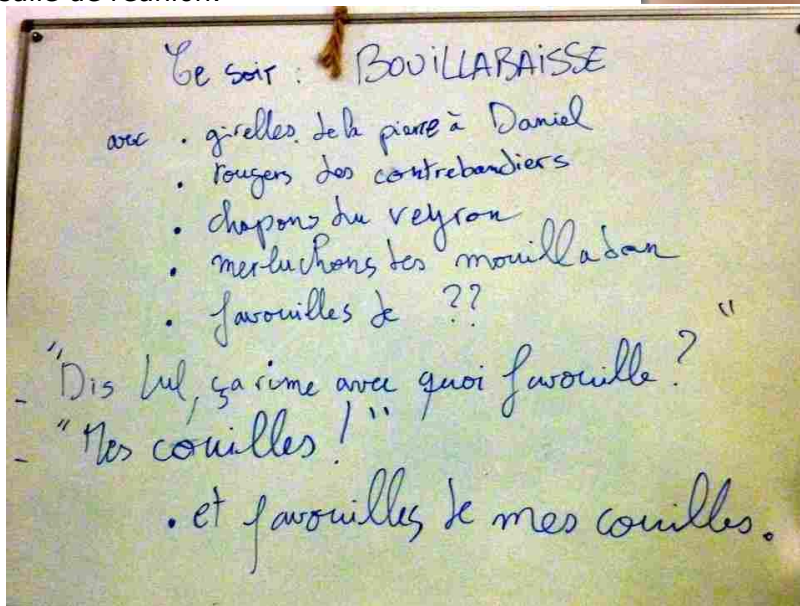 salle de réunion.
Ce soir : BOUILLABAISSE
avec . girelles de la pierre à Daniel
. rougers des contrebandiers
. chapons du veyron
. merluchons des mouilladan
. favouilles de ??
- "Dis Lul, ça rime avec quoi favouille ? "
- "Mes couilles ! "
. et favouilles de mes couilles.